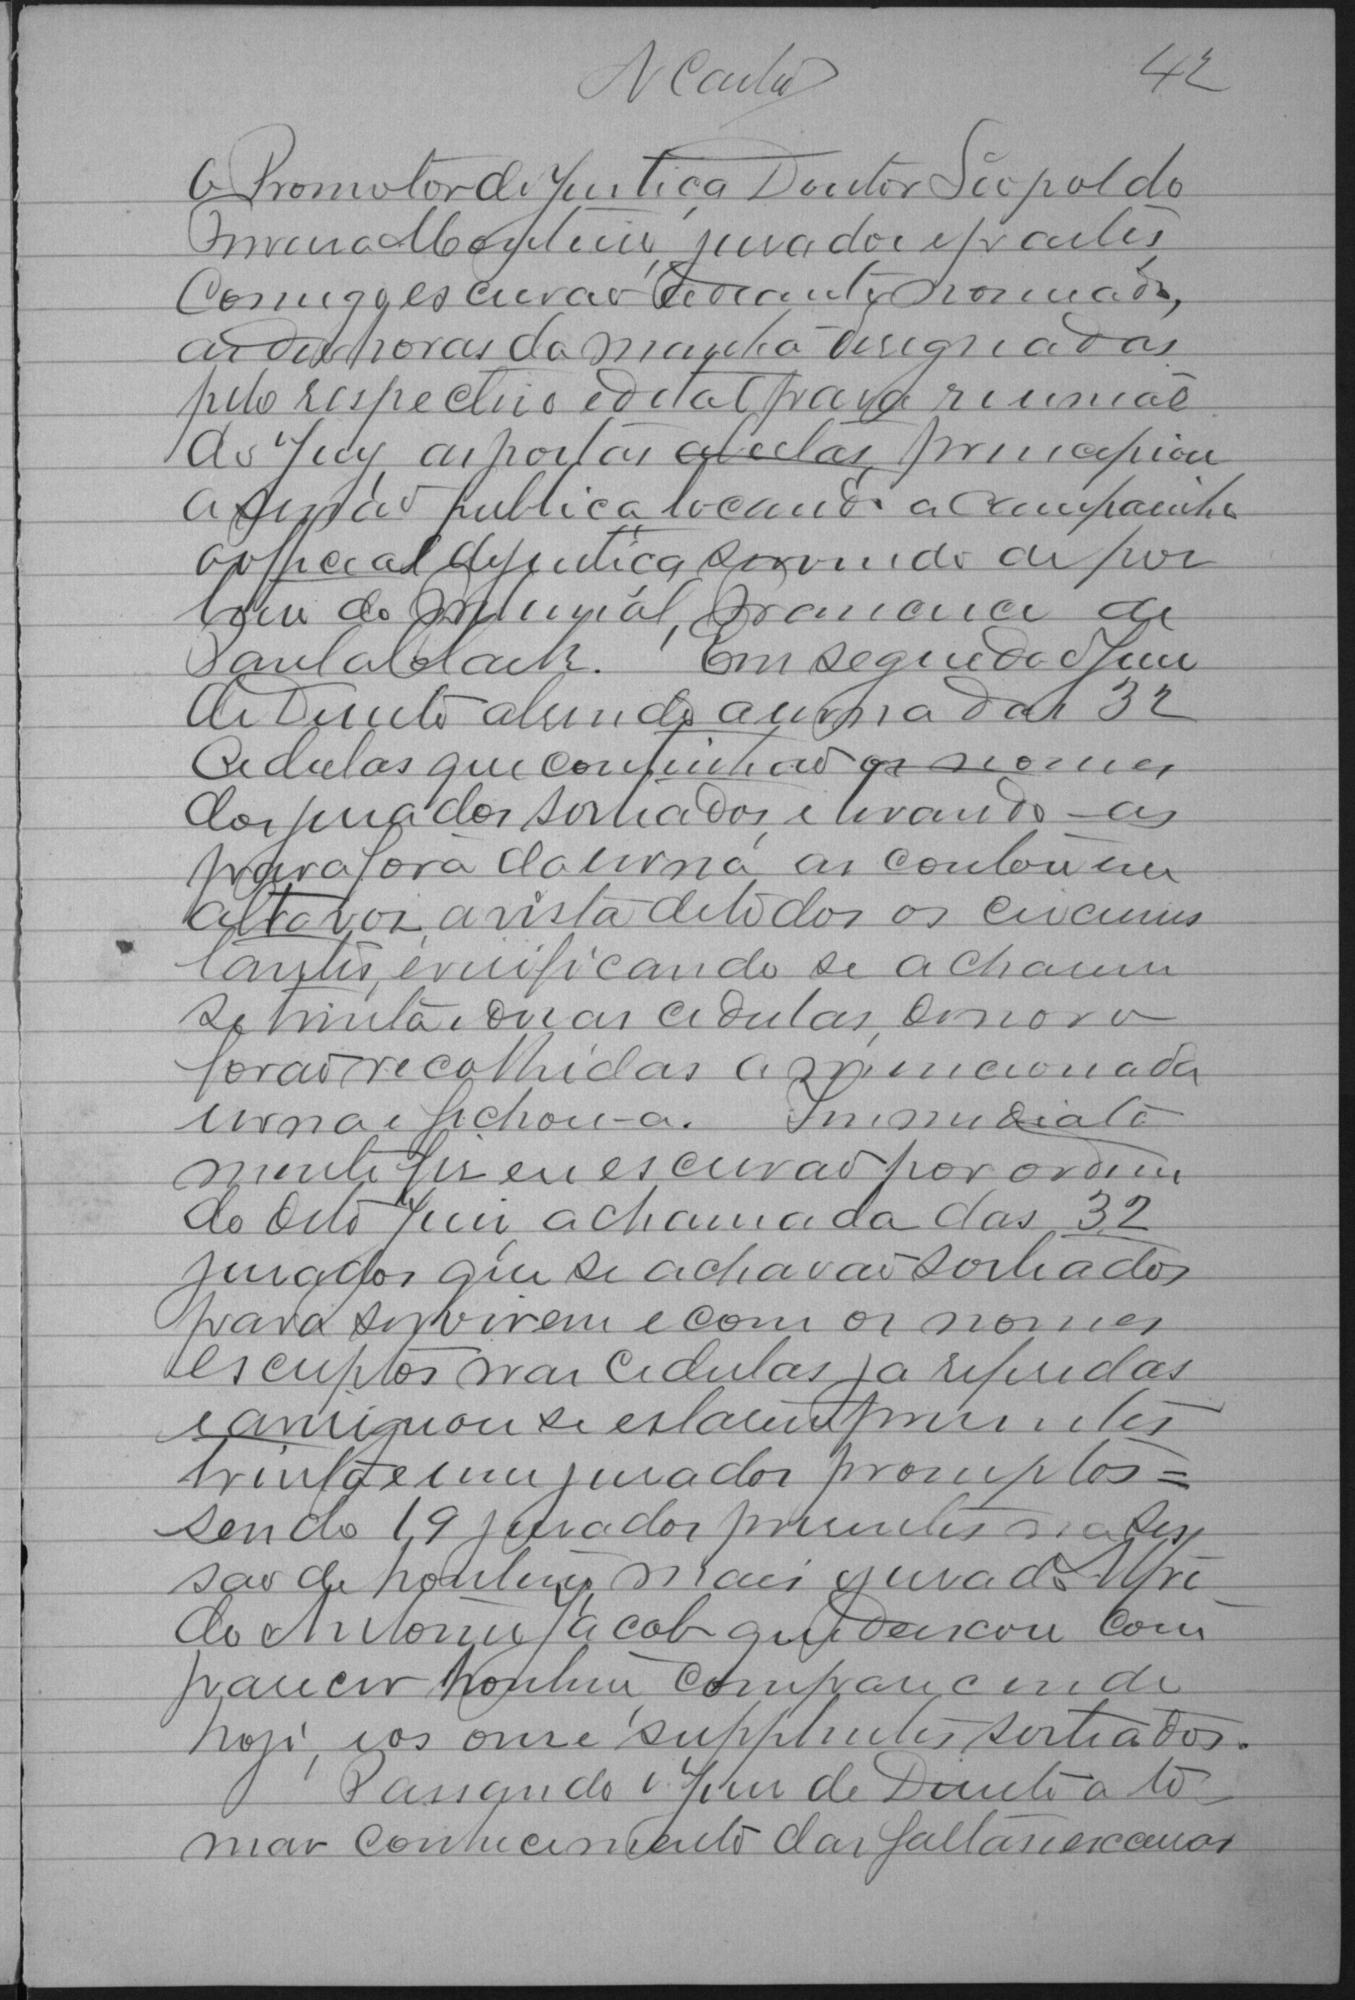 42
O Promotor de Justiça Doutor Leopoldo
Monteiro, jurados e partes,
Comigo escrivão adeante nomeado,
as dez horas da manhã designadas
pelo respectivo edital para reunião
do Jury, as portas abertas, principiou
a sessão publica, tocando a campainha
o official de justiça servindo de por
teiro do Tribunal, Francisco de
Paula. Em seguida o Juiz
de Direito abrindo a urna das 32
Cedulas que continhão os nomes
dos jurados sorteados, e tirando-as
para fora da urna, as contou em
alta voz, a vista de todos os circums
tantes, e verificando se acharem
se trinta e duas cedulas, de novo
forão recolhidas a mencionada
urna e fichou-a. Immediata
mente fiz eu escrivão por ordem
do dito Juiz, a chamada dos 32
jurados que se achavão sorteados
para servirem e com os nomes
escriptos nas cedulas ja referidas
e averiguou se estarem presentes
trinta e um jurados promptos =
sendo 19 jurados presentes na ses
são de hontem, mais o jurado Alfre
do Antonio Jacob que deixou com
parecer hontem comparecendo
hoje, e os onze supplentes sorteados.
Passando o Juiz de Direito a to
mar conhecimento das faltas e escusas